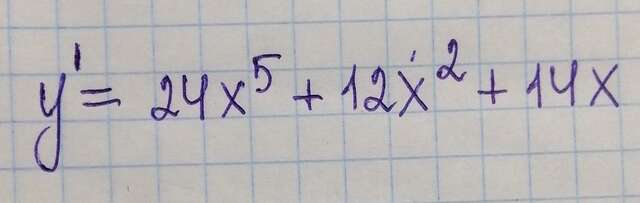 y' = 24x⁵ + 12x² + 14x